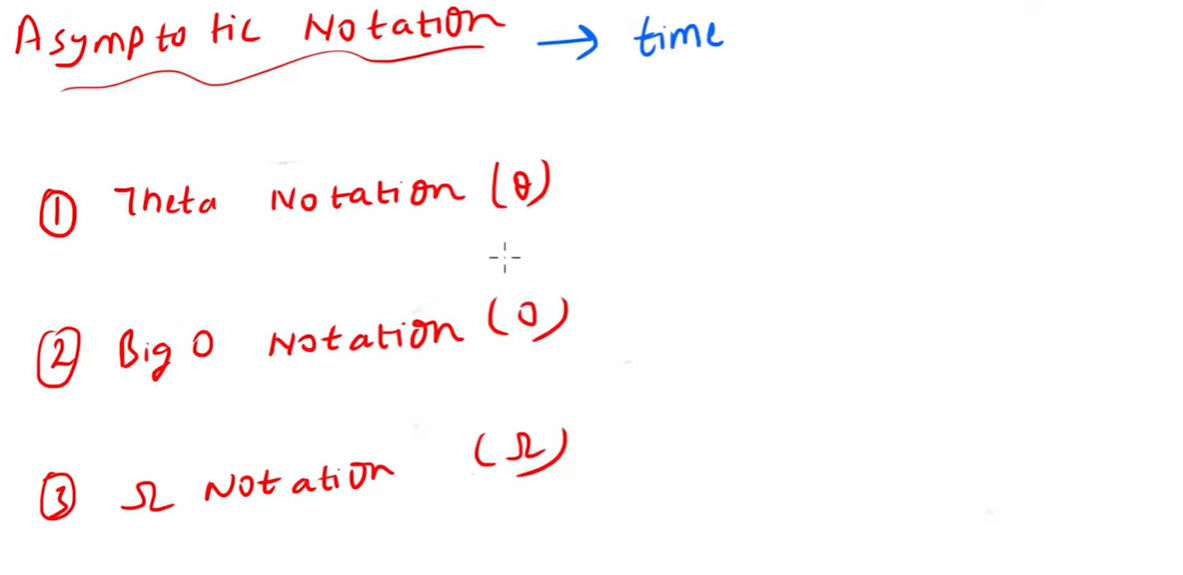 Asymptotic Notation → time
① Theta Notation (θ)
② Big O Notation (O)
③ Ω Notation (Ω)